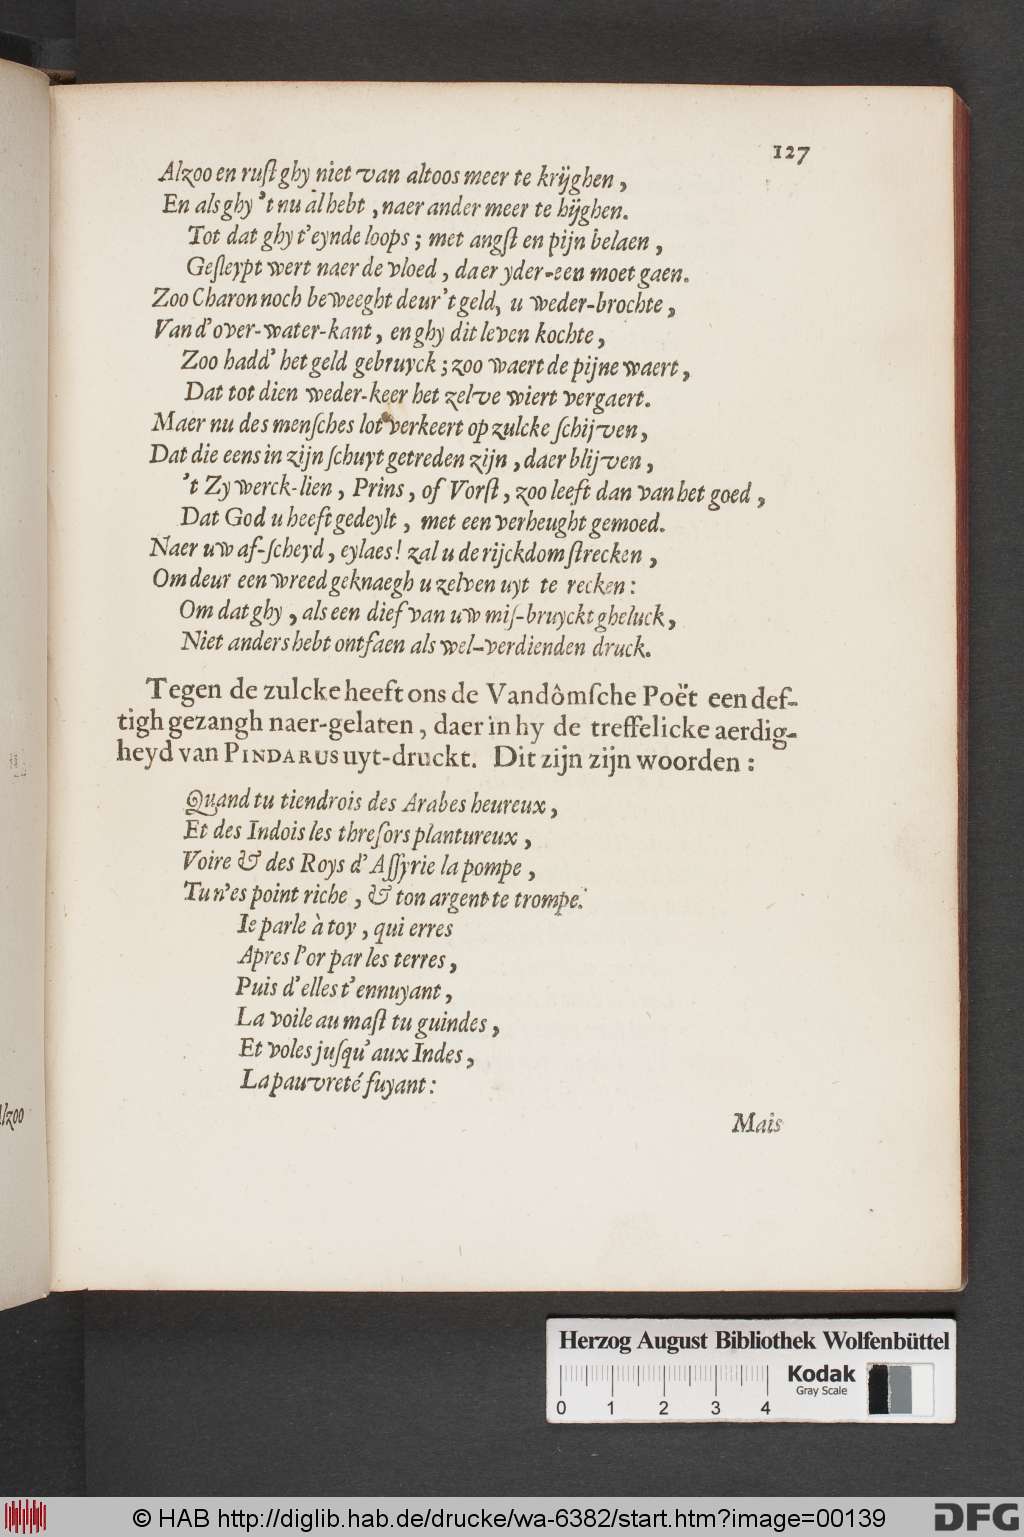 127
Alzoo en ruſt ghy niet van altoos meer te krijghen,
En als ghy 't nu al hebt, naer ander meer te hijghen.
Tot dat ghy t'eynde loops; met angſt en pijn belaen,
Geſleypt wert naer de vloed, daer yder-een moet gaen.
Zoo Charon noch beweeght deur 't geld, u weder-brochte,
Van d'over-water-kant, en ghy dit leven kochte,
Zoo hadd' het geld gebruyck; zoo waert de pijne waert,
Dat tot dien weder-keer het zelve wiert vergaert.
Maer nu des menſches lot verkeert op zulcke ſchijven,
Dat die eens in zijn ſchuyt getreden zijn, daer blijven,
't Zy werck-lien, Prins, of Vorſt, zoo leeft dan van het goed,
Dat God u heeft gedeylt, met een verheught gemoed.
Naer uw af-ſcheyd, eylaes! zal u de rijckdom ſtrecken,
Om deur een wreed geknaegh u zelven uyt te recken:
Om dat ghy, als een dief van uw miſ-bruyckt gheluck,
Niet anders hebt ontfaen als wel-verdienden druck.
Tegen de zulcke heeft ons de Vandômſche Poët een def-
tigh gezangh naer-gelaten, daer in hy de treffelicke aerdig-
heyd van PINDARUS uyt-druckt. Dit zijn zijn woorden:
Quand tu tiendrois des Arabes heureux,
Et des Indois les threſors plantureux,
Voire & des Roys d'Aſſyrie la pompe,
Tu n'es point riche, & ton argent te trompe.
Ie parle à toy, qui erres
Apres l'or par les terres,
Puis d'elles t'ennuyant,
La voile au maſt tu guindes,
Et voles juſqu' aux Indes,
La pauvreté fuyant:
Mais
Alzoo
Herzog August Bibliothek Wolfenbüttel
Kodak
Gray Scale
0 1 2 3 4
© HAB http://diglib.hab.de/drucke/wa-6382/start.htm?image=00139
DFG